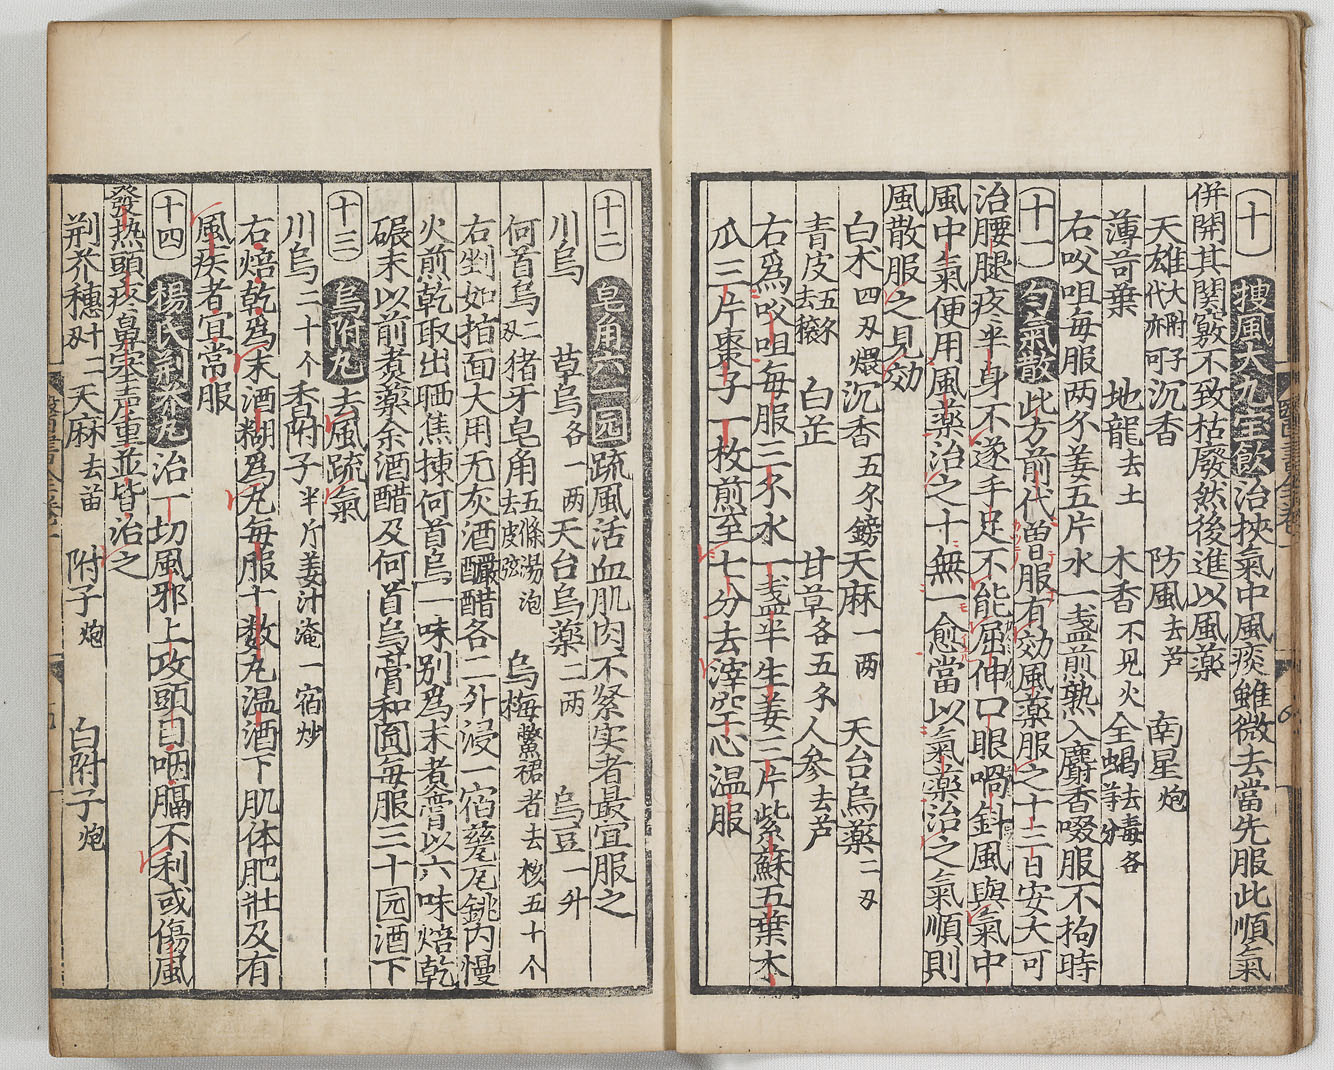 十 搜風大九宝飲 治挾氣中風痰雖微去當先服此順氣
併開其関竅不致枯廢然後進以風藥
天雄 大附子代亦可 沉香 防風去芦 南星炮
薄苛葉 地龍去土 木香不見火 全蝎去毒各等分
右㕮咀每服两分姜五片水一盞煎熟入麝香啜服不拘時
十一 匀氣散 此方前代曽服有効風藥服之十三百安大可
治腰腿疼半身不遂手足不能屈伸口眼喎斜風與氣中
風中氣便用風薬治之十無一愈當以氣薬治之氣順則
風散服之見効
白术四刄煨 沉香五分鎊 天麻一两 天台烏藥二刄
青皮五分去穣 白芷 甘草各五分 人参去芦
右爲㕮咀每服三分水一盞半生姜三片紫蘇五葉木
瓜三片棗子一枚煎至七分去滓空心温服
十二 皂角六一园 疏風活血肌肉不緊实者最宜服之
川烏 草烏各一两 天台烏薬二两 烏豆一升
何首烏二刄 猪牙皂角五條湯泡去皮弦 烏梅鱉裙者去核五十个
右剉如拍面大用无灰酒釅醋各二升浸一宿甆瓦銚内慢
火煎乾取出晒焦揀何首烏一味別爲末煮膏以六味焙乾
碾末以前煮薬余酒醋及何首烏膏和圎每服三十园酒下
十三 烏附丸 去風疏氣
川烏二十个 香附子半斤姜汁淹一宿炒
右焙乾爲末酒糊爲丸每服十数丸温酒下肌体肥壮及有
風疾者宜常服
十四 楊氏荆芥丸 治一切風邪上攻頭目咽膈不利或傷風
發热頭疼鼻宻声重並皆治之
荆芥穗十二刄 天麻去苗 附子炮 白附子炮